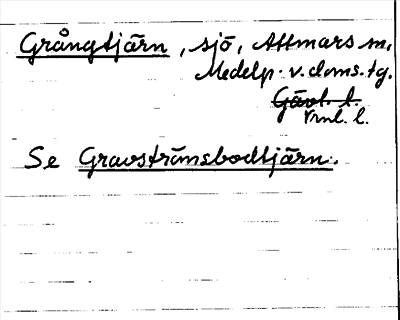 Grångtjärn, sjö, Attmars sn,
Medelp. v. doms. tg.
Gävl. l.
Vrnl. l.
Se Gravströmsbodtjärn.